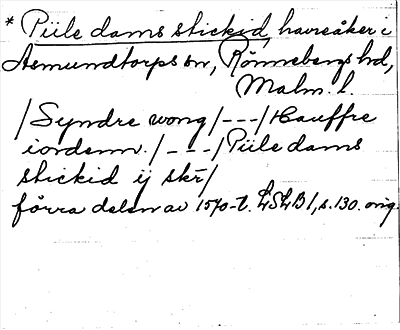 * Piile dams stickid, havreåker i
Asmundtorps sn, Rönnebergs hd,
Malm. l.
/Syndre wong/---/Hauffre
iordenn./---/Piile dams
stickid ij skr/
förra delen av 1570-t. LSLB1, s. 130. orig.